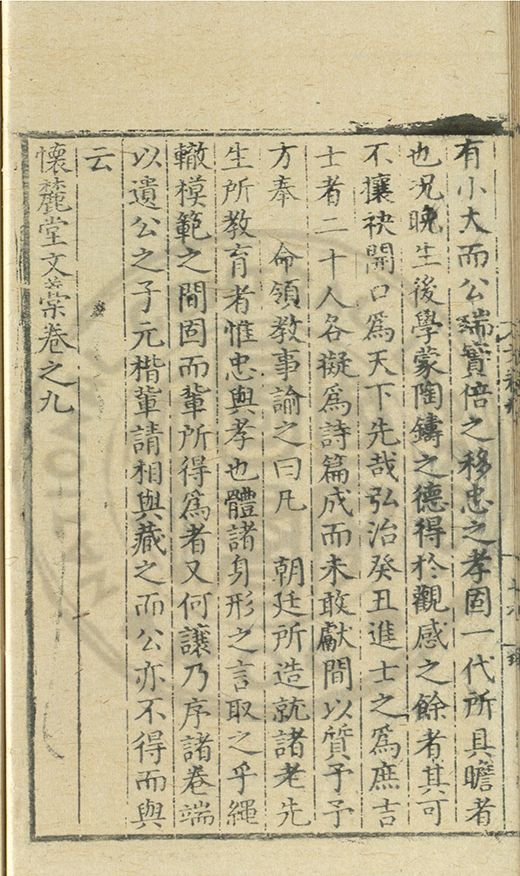 有小大而公端實倍之移忠之孝固一代所具瞻者
也况晚生後學蒙陶鑄之德得於觀感之餘者其可
不攘袂開口為天下先哉弘治癸丑進士之為庶吉
士者二十人各擬為詩篇成而未敢獻間以質予予
方奉　命領教事諭之曰凡　朝廷所造就諸老先
生所教育者惟忠與孝也體諸身形之言取之乎繩
轍模範之間固而輩所得為者又何讓乃序諸卷端
以遺公之子元楷輩請相與藏之而公亦不得而與
云
懷麓堂文藁卷之九